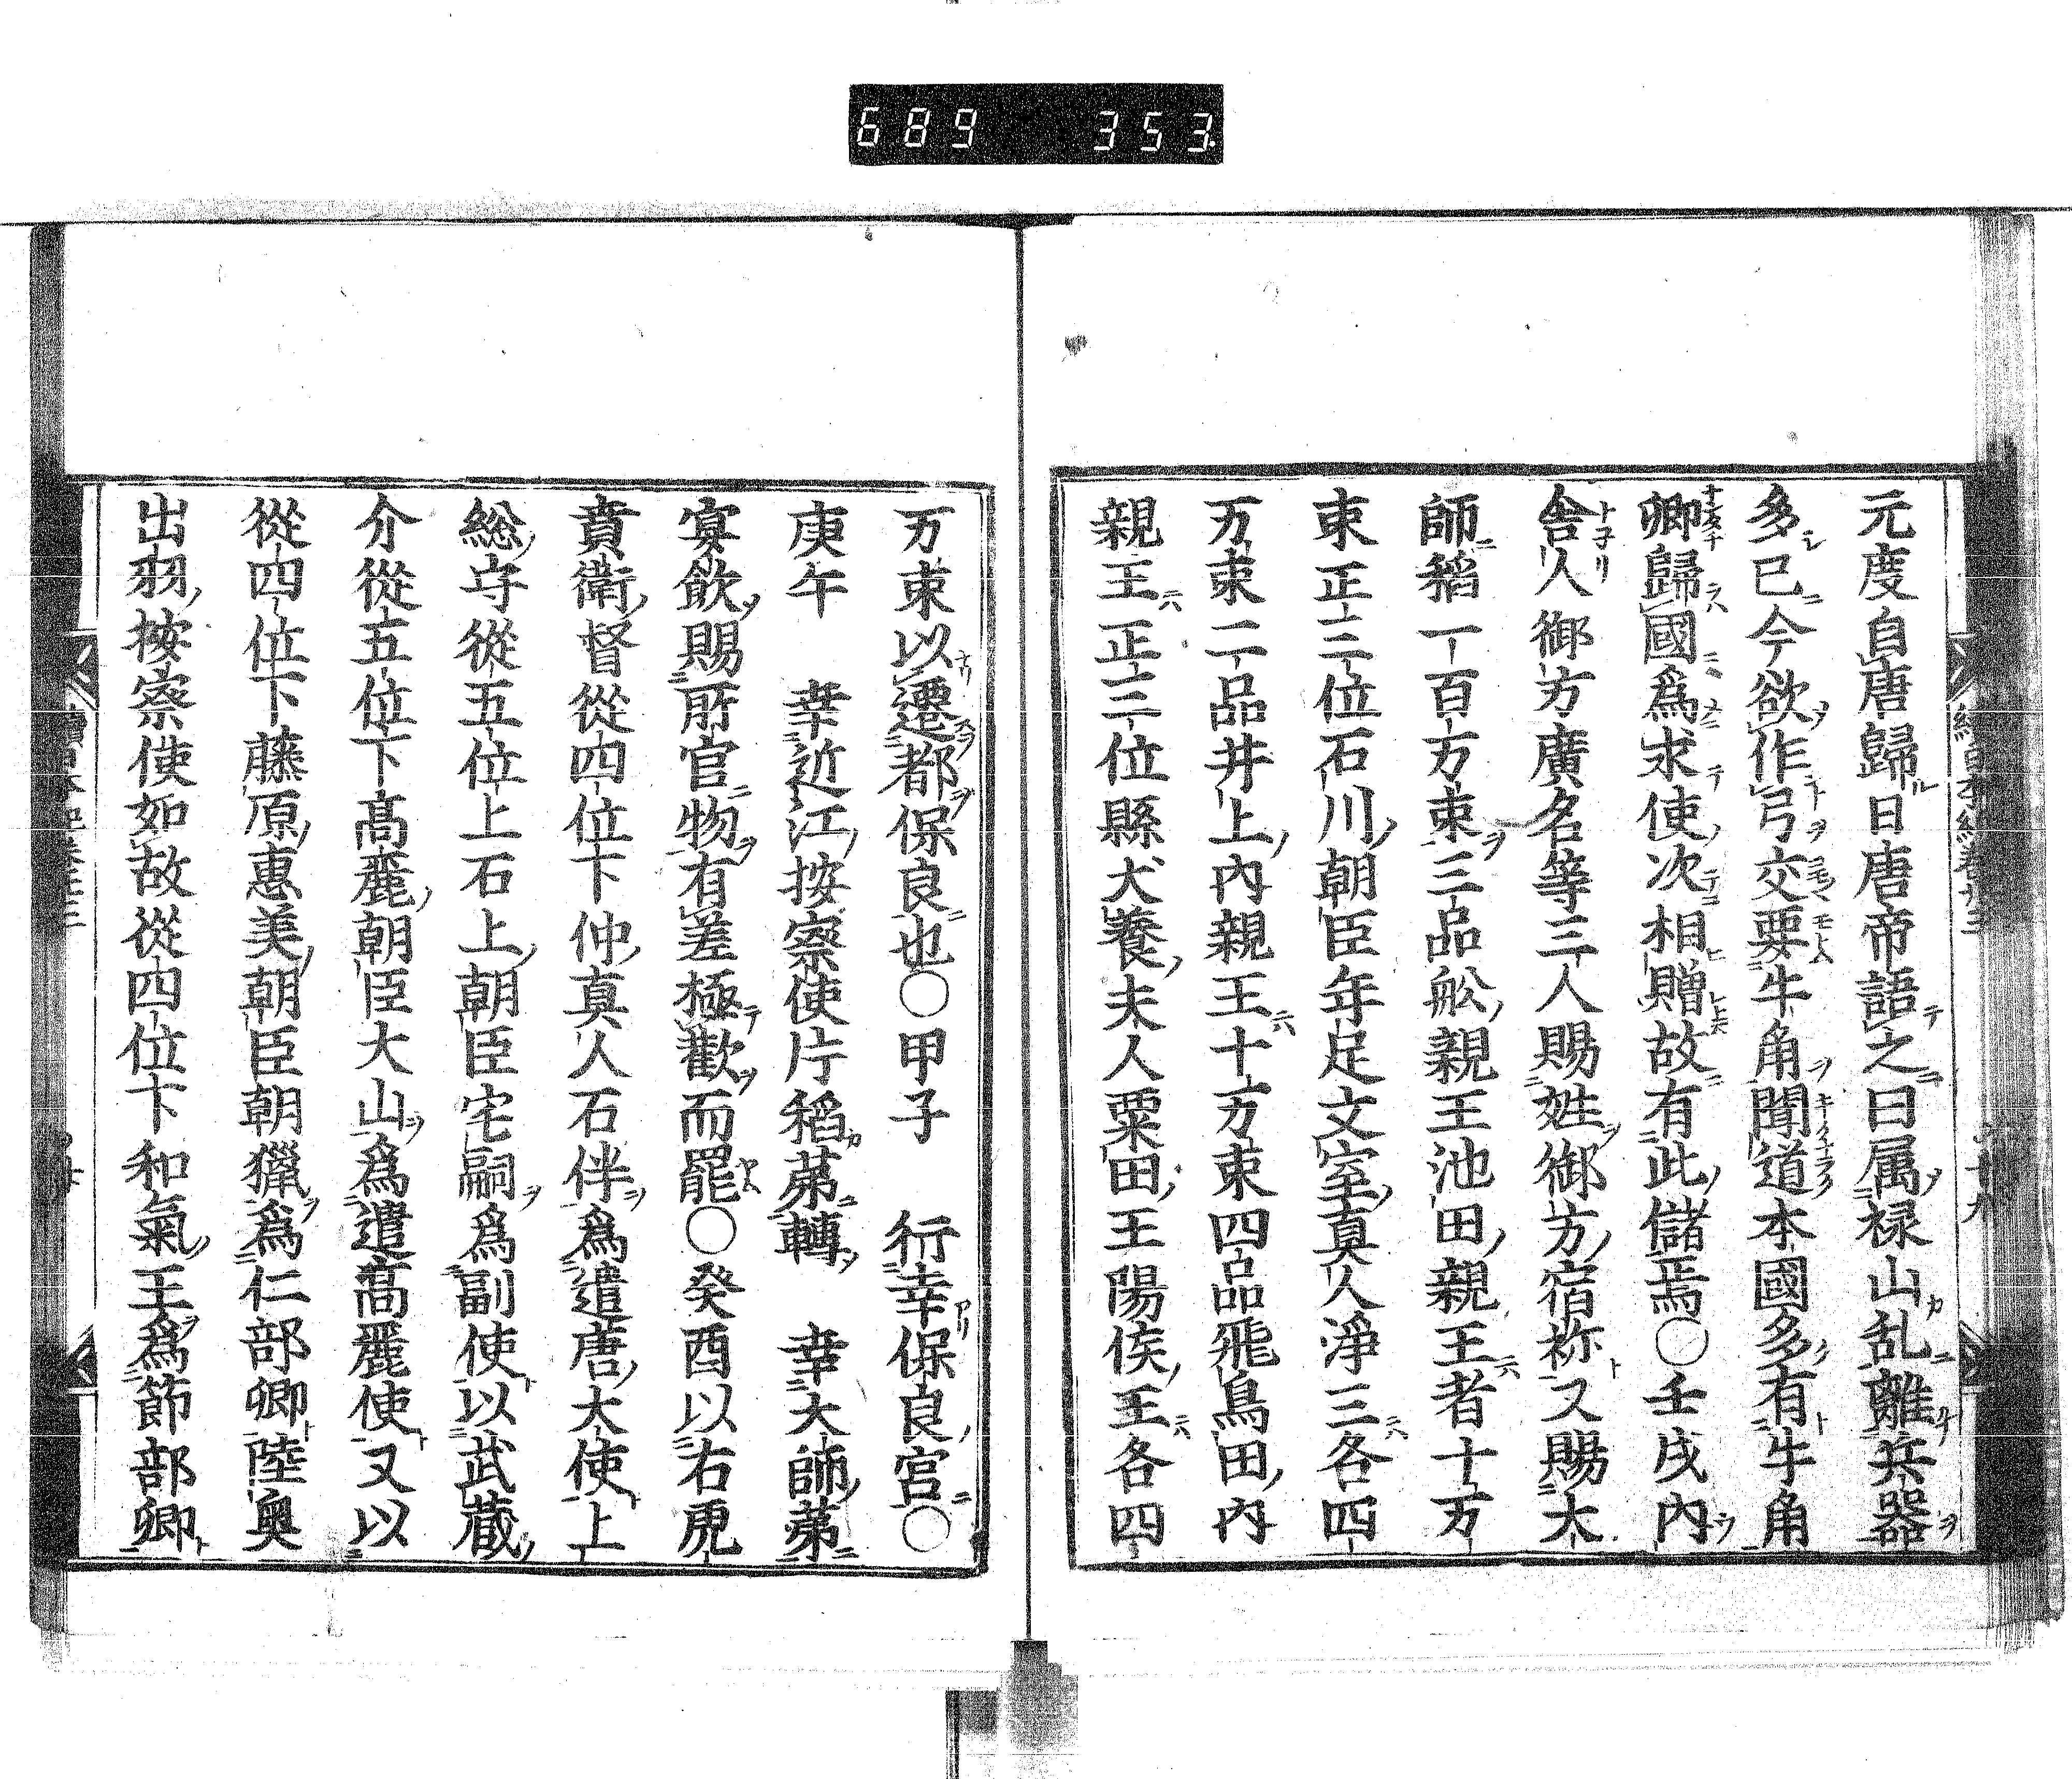 689 353
元度自唐歸日唐帝語之曰属禄山乱離兵器
多已今欲作弓交要牛角聞道本國多有牛角
卿歸國爲求使次相贈故有此儲焉〇壬戌内
舎人御方廣名等三人賜姓御方宿祢又賜大
師稻一百万束三品舩親王池田親王者十万
束正三位石川朝臣年足文室真人淨三各四
万束二品井上内親王十万束四品飛鳥田内
親王正三位縣犬養夫人粟田王陽侯王各四
万束以遷都保良也〇甲子 行幸保良宮〇
庚午 幸近江按察使片稻苐轉 幸大師苐
宴飲賜所官物有差極歡而罷〇癸酉以右虎
賁衛督從四位下仲真人石伴爲遣唐大使上
総守從五位上石上朝臣宅嗣爲副使以武蔵
介從五位下髙麗朝臣大山爲遣髙麗使又以
從四位下藤原惠美朝臣朝獵爲仁部卿陸奥
出羽按察使如故從四位下和氣王爲節部卿